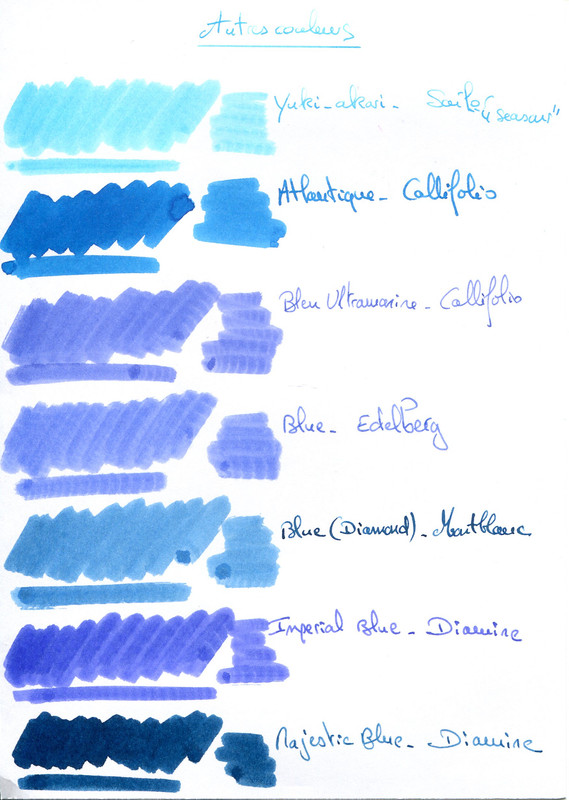 Autres couleurs
Yuki-akari - Sailor "season"
Atlantique - Callifolio
Bleu Ultramarine - Callifolio
Blue - Edelberg
Blue (Diamond) - Montblanc
Imperial Blue - Diamine
Majestic Blue - Diamine